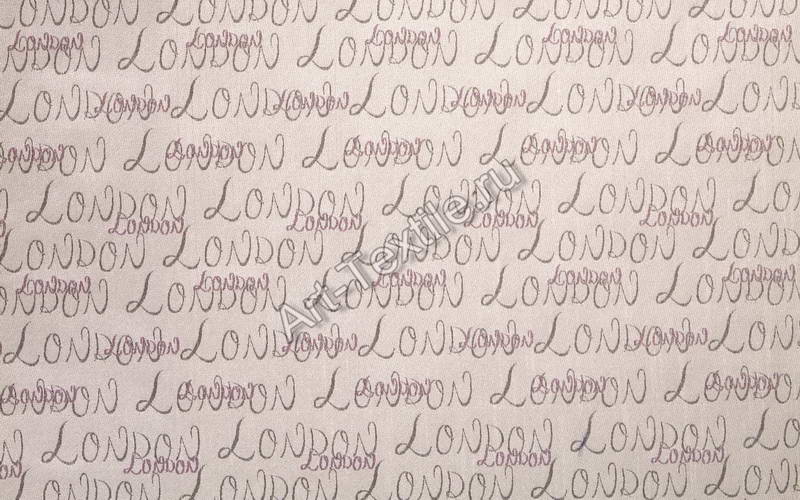 LONDON LONDON LONDON LONDON
NDON LONDON LONDON LONDON LONDO
London London London London London
LONDON LONDON LONDON LONDON LON
London London London London
ONDON LONDON LONDON LONDON LONDON
London London London London London
N LONDON LONDON LONDON LONDON LO
London London London London
LONDON LONDON LONDON LONDON LON
NDON LONDON LONDON LONDON LONDO
London London London London London
LONDON LONDON LONDON LONDON LON
London London London London
ONDON LONDON LONDON LONDON LONDO
London London London London London
N LONDON LONDON LONDON LONDON LO
London London London London
LONDON LONDON LONDON LONDON LON
Art-Textile.ru